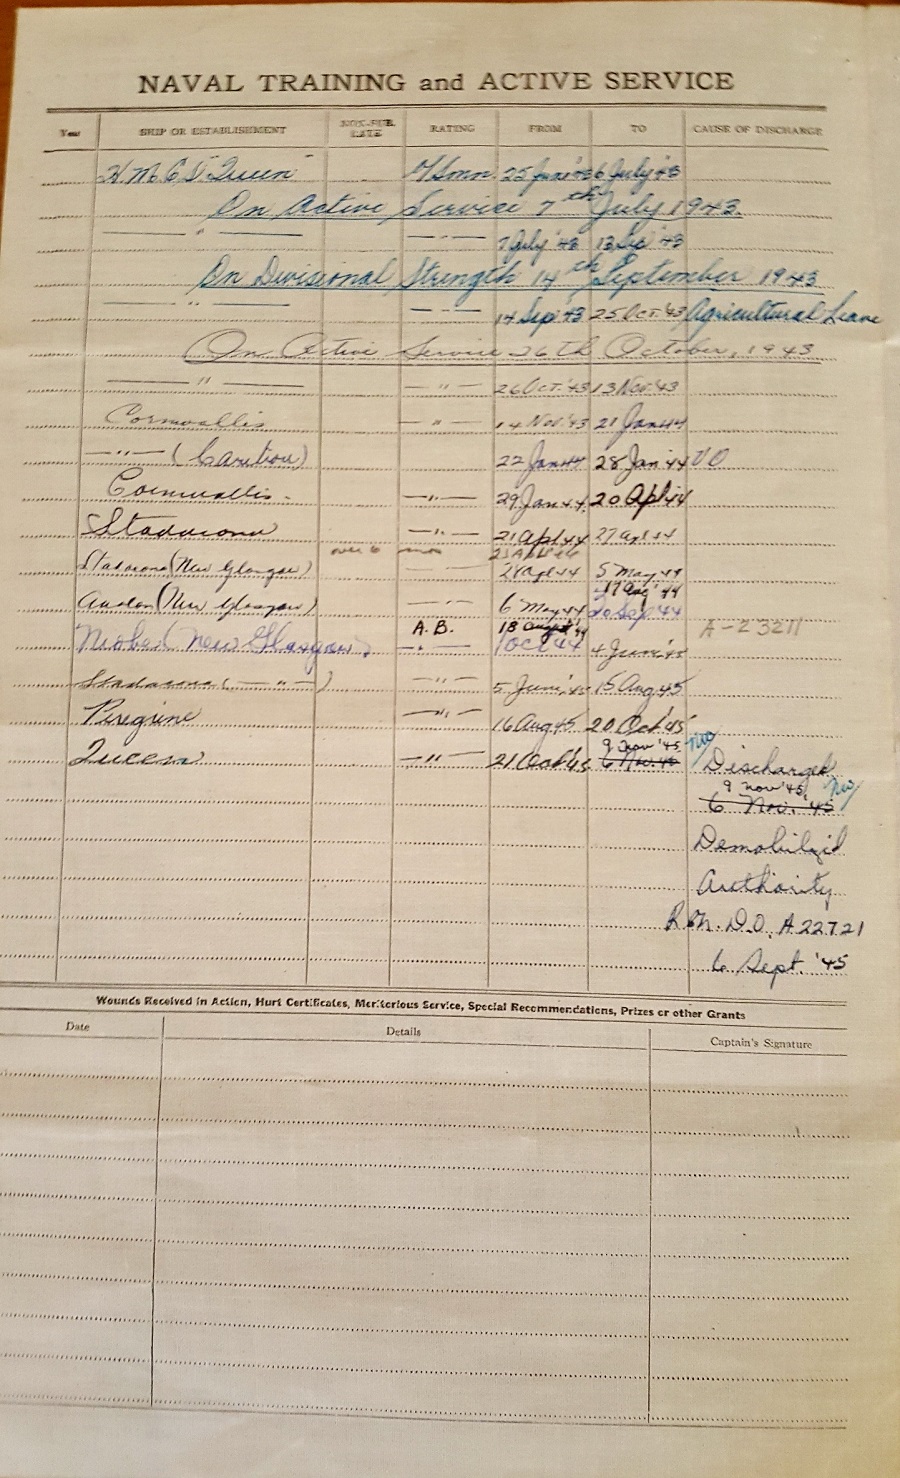 NAVAL TRAINING and ACTIVE SERVICE
Year SHIP OR ESTABLISHMENT NON-SUB. RATE RATING FROM TO CAUSE OF DISCHARGE
H.M.C.S "Queen" 25 June '43 6 July '43
On Active Service 7th July 1943.
— " — — " — 7 July '43 13 Sep '43
On Divisional Strength 14th September 1943
— " — — " — 14 Sep '43 25 Oct '43 Agricultural Leave
On Active Service 26th October, 1943
— " — — " — 26 Oct. '43 13 Nov. '43
Cornwallis — " — 14 Nov. '43 21 Jan 44
— " — (Caribou) 22 Jan 44 28 Jan '44
Cornwallis. — " — 29 Jan 44. 20 Apl 44
Stadacona — " — 21 Apl 44 27 Apl 44
over 6 mos
Stadacona (New Glasgow) — 28 Apl 44 5 May 44
17 Aug '44
Avalon (New Glasgow) — " — 6 May 44 30 Sep 44
A.B. 18 August '44 A-23211
Niobe (New Glasgow) — " — 1 Oct 44 4 June '45
Stadacona ( — " — ) — " — 5 June '45 15 Aug 45
Peregrine — " — 16 Aug 45 20 Oct '45
9 Nov '45
Queen — " — 21 Oct '45 6 Nov. 45 Discharged
9 Nov '45,
6 Nov. '45
Demobilzid
Authority
R.M. D.O. A22721
6 Sept. '45
Wounds Received in Action, Hurt Certificates, Meritorious Service, Special Recommendations, Prizes or other Grants
Date Details Captain's Signature